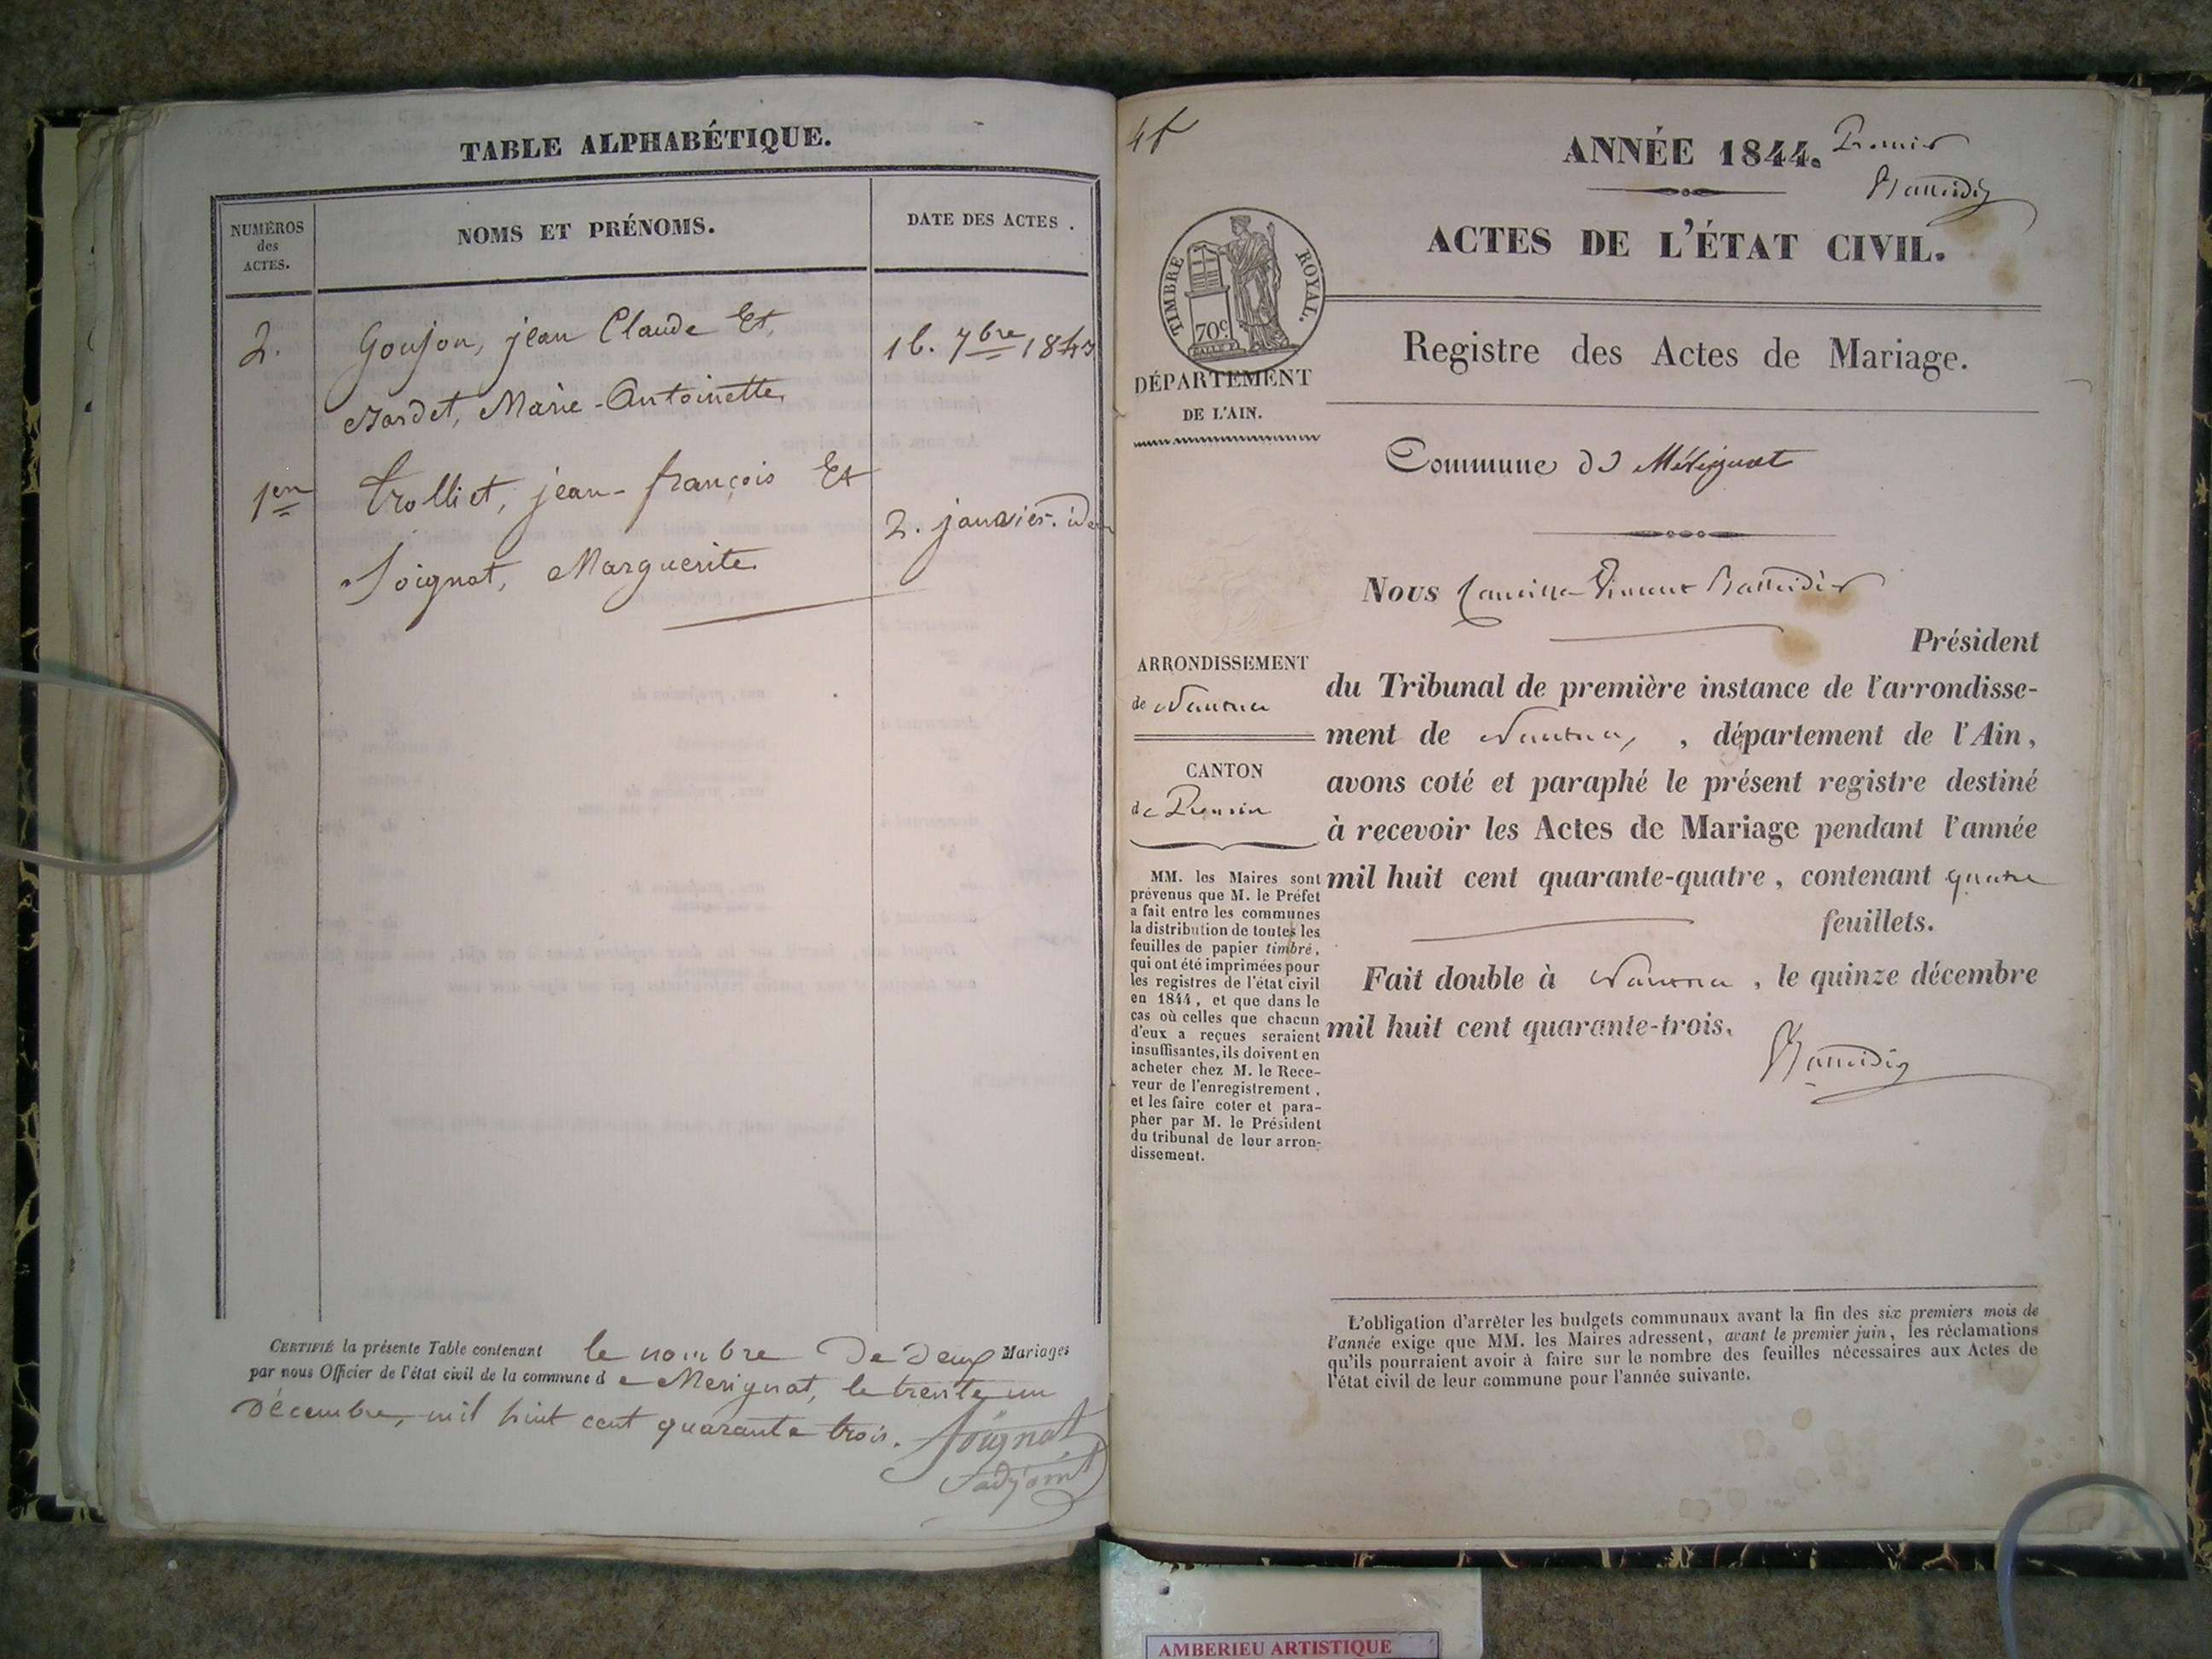 TABLE ALPHABÉTIQUE.
NUMÉROS
des
ACTES.
NOMS ET PRÉNOMS.
DATE DES ACTES.
2. Goujon, jean Claude Et 16. 7bre 1843
Jardet, Marie-Antoinette
1er Trolliet, jean-françois Et
2. janvier. idem
Soignat, Marguerite
CERTIFIÉ la présente Table contenant le nombre De deux Mariages
par nous Officier de l'état civil de la commune de Merignat, le trente un
Décembre, mil huit cent quarante trois. Soignat
adjoint
4f
ANNÉE 1844. Premier
ACTES DE L'ÉTAT CIVIL.
TIMBRE ROYAL.
70c
Registre des Actes de Mariage.
DÉPARTEMENT
DE L'AIN.
Commune de Mérignat
Nous
Président
ARRONDISSEMENT
de Nantua
CANTON
de Poncin
du Tribunal de première instance de l'arrondisse-
ment de Nantua, , département de l'Ain,
avons coté et paraphé le présent registre destiné
à recevoir les Actes de Mariage pendant l'année
mil huit cent quarante-quatre, contenant quatre
feuillets.
Fait double à Nantua, le quinze décembre
mil huit cent quarante-trois.
MM. les Maires sont
prévenus que M. le Préfet
a fait entre les communes
la distribution de toutes les
feuilles de papier timbré,
qui ont été imprimées pour
les registres de l'état civil
en 1844, et que dans le
cas où celles que chacun
d'eux a reçues seraient
insuffisantes, ils doivent en
acheter chez M. le Rece-
veur de l'enregistrement,
et les faire coter et para-
pher par M. le Président
du tribunal de leur arron-
dissement.
L'obligation d'arrêter les budgets communaux avant la fin des six premiers mois de
l'année exige que MM. les Maires adressent, avant le premier juin, les réclamations
qu'ils pourraient avoir à faire sur le nombre des feuilles nécessaires aux Actes de
l'état civil de leur commune pour l'année suivante.
AMBERIEU ARTISTIQUE